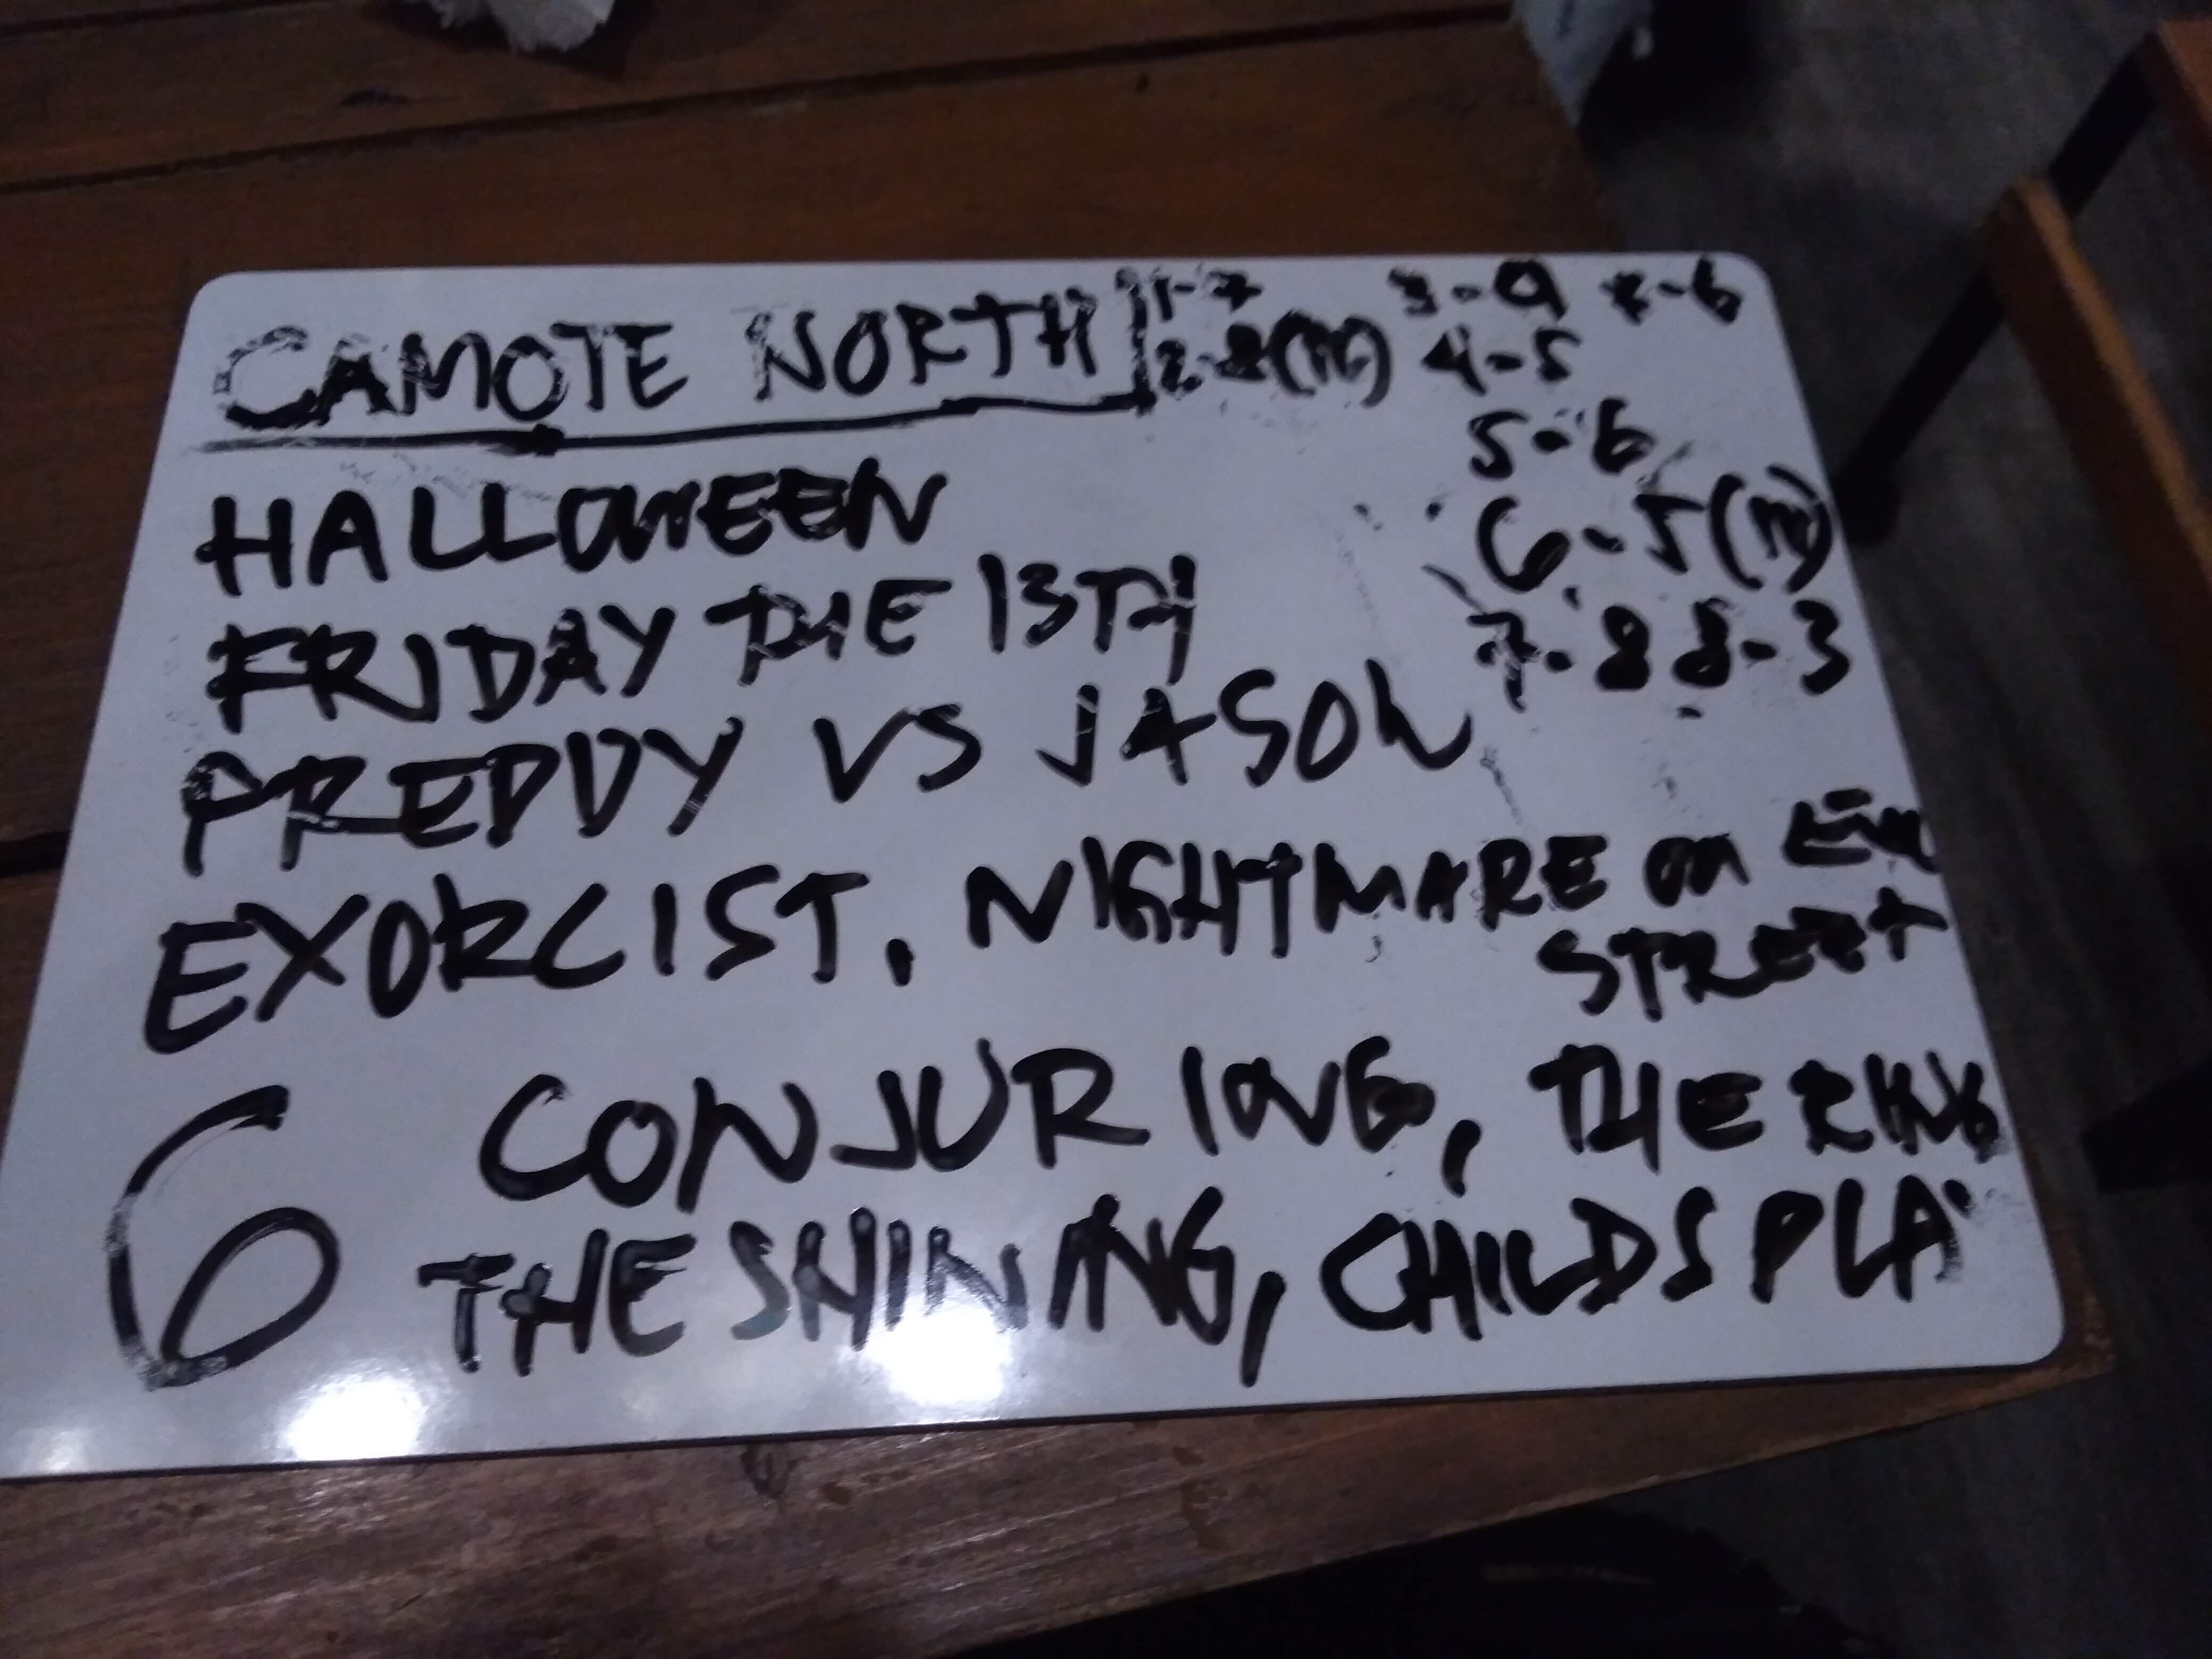 CAMOTE NORTH 1-7 3-9
2-8(M) 4-5
5-6
6-5(M)
7-8 8-3
HALLOWEEN
FRIDAY THE 13TH
FREDDY VS JASON
EXORCIST, NIGHTMARE on Elm
STREET
6 CONJURING, THE RING
THE SHINING, CHILDS PLAY